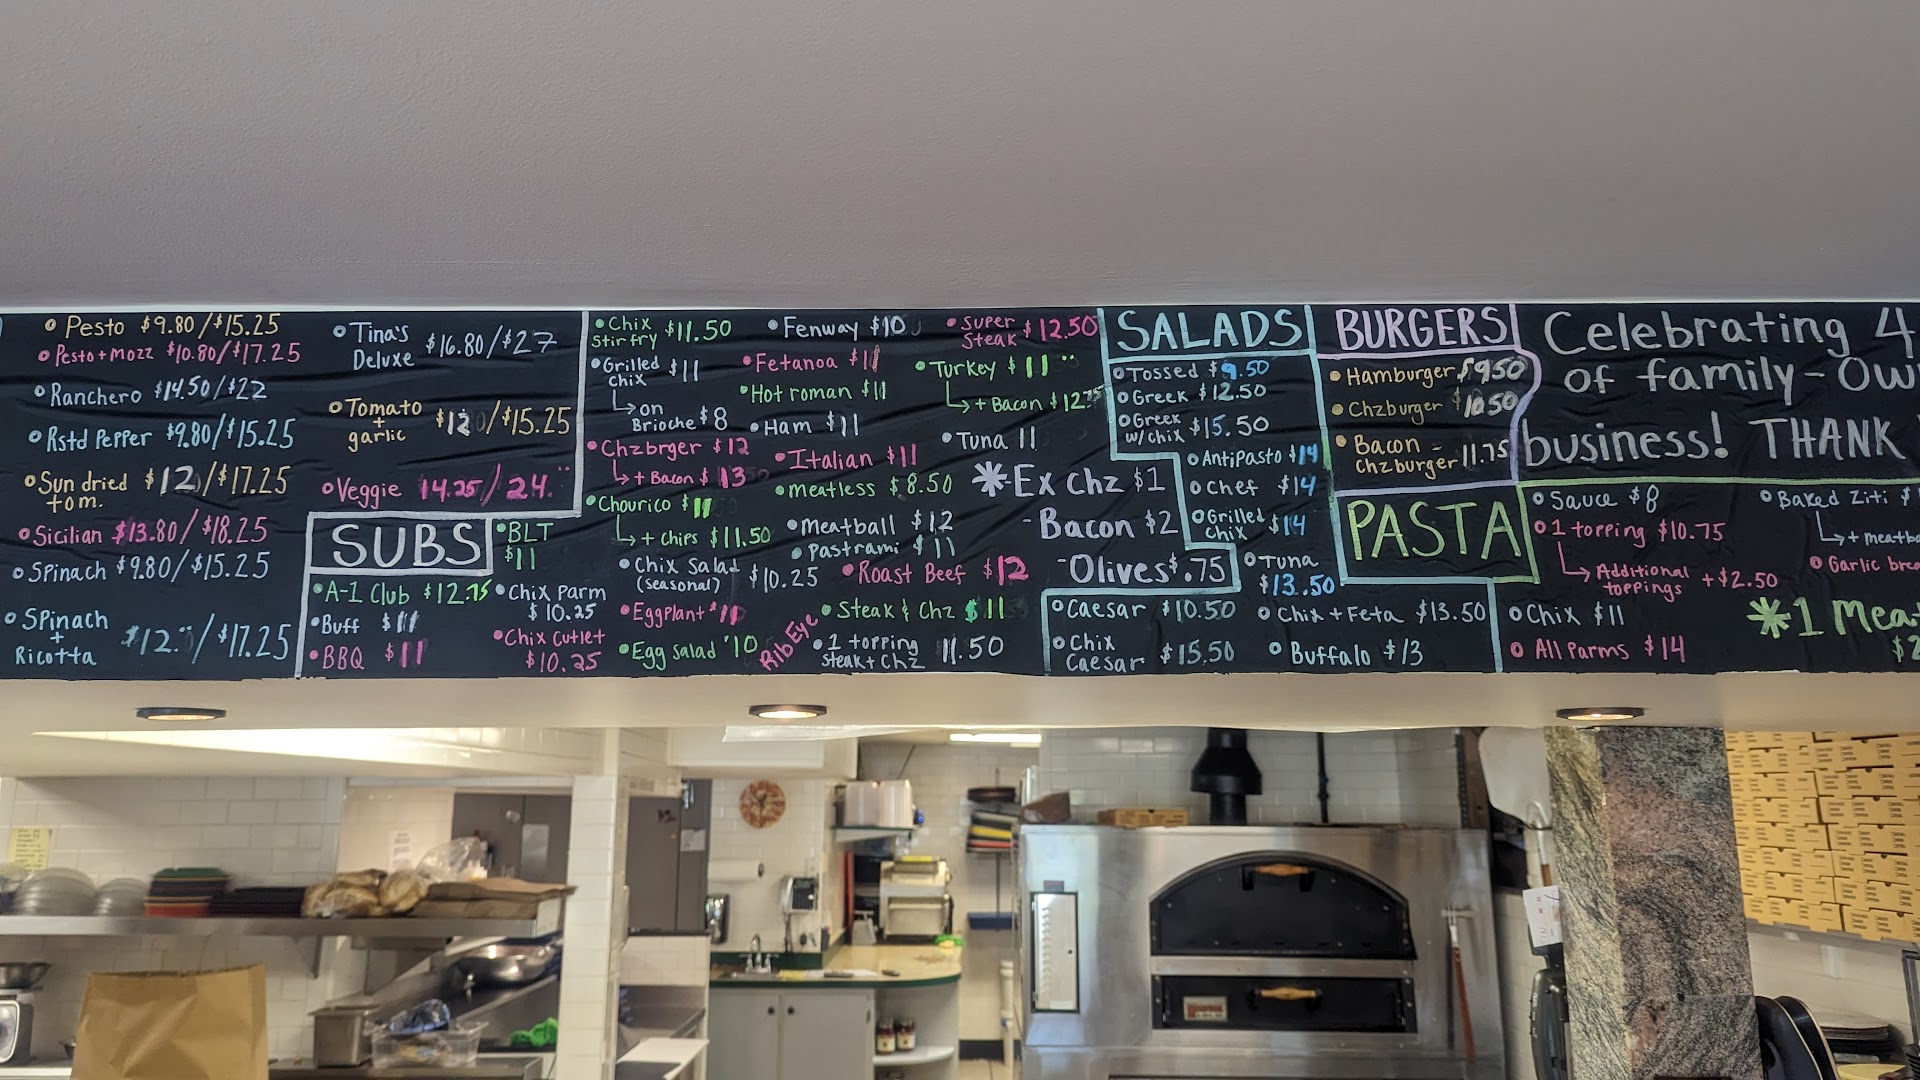 Pesto $9.80/$15.25
Pesto+Mozz $10.80/$17.25
Ranchero $14.50/$22
Rstd Pepper $9.80/$15.25
Sun dried $12/$17.25
tom.
Sicilian $13.80/$18.25
Spinach $9.80/$15.25
Spinach
+
Ricotta $12./$17.25
Tina's
Deluxe $16.80/$27
Tomato
+
garlic $12/$15.25
Veggie 14.25/24.
SUBS
A-1 Club $12.75
Buff $11
BBQ $11
BLT
$11
Chix Parm
$10.25
Chix Cutlet
$10.25
Chix
Stir fry $11.50
Grilled
chix $11
on
Brioche $8
Chzbrger $12
+ Bacon $13
Chourico $11
+ chips $11.50
Chix Salad
(seasonal) $10.25
Eggplant $11
Egg Salad $10
Fenway $10
Fetanoa $11
Hot roman $11
Ham $11
Italian $11
Meatless $8.50
Meatball $12
Pastrami $11
Roast Beef $12
RibEye
Steak & Chz $11
1 topping
steak+chz 11.50
Super
Steak $12.50
Turkey $11
+ Bacon $12.75
Tuna 11
*Ex Chz $1
- Bacon $2
- Olives $.75
SALADS
Tossed $9.50
Greek $12.50
Greek
w/chix $15.50
AntiPasto $14
Chef $14
Grilled
chix $14
Tuna
$13.50
Caesar $10.50
Chix
Caesar $15.50
Chix + Feta $13.50
Buffalo $13
BURGERS
Hamburger $9.50
Chzburger $10.50
Bacon -
Chzburger 11.75
PASTA
Sauce $8
1 topping $10.75
Additional
toppings + $2.50
Chix $11
All Parms $14
Baked Ziti $
+ meatba
Garlic brea
*1 Meat
$2
Celebrating 4
of family-Ow
business! THANK